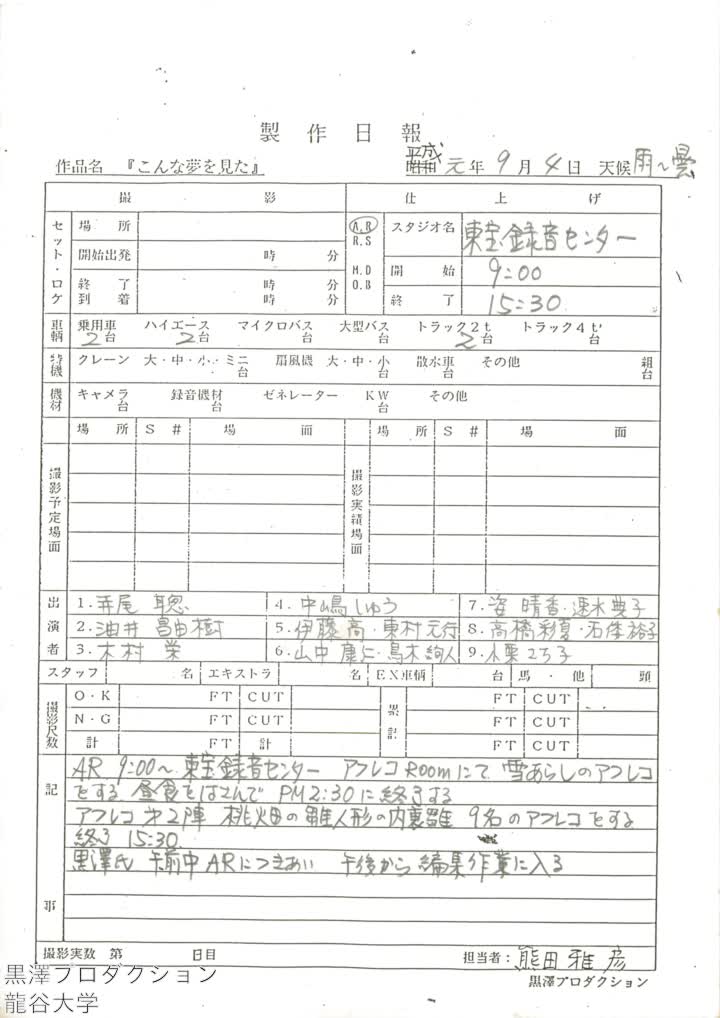 製作日報
作品名 『こんな夢を見た』 平成 昭和 元年 9月 4日 天候 雨～曇
撮影 仕上げ
セット・ロケ 場所 A.R R.S M.D O.B スタジオ名 東宝録音センター
開始出発 時 分 開始 9:00
終了 時 分 終了 15:30
到着 時 分
車輌 乗用車 2台 ハイエース 2台 マイクロバス 台 大型バス 台 トラック2t 2台 トラック4t 台
特機 クレーン 大・中・小・ミニ 台 扇風機 大・中・小 台 散水車 台 その他 組 台
機材 キャメラ 台 録音機材 台 ゼネレーター KW 台 その他
場所 S# 場面 場所 S# 場面
撮影予定場面 撮影実績場面
出演者 1.寺尾 聰 4.中嶋しゅう 7.姿 晴香・速水典子
2.油井昌由樹 5.伊藤 高・東村元行 8.高橋彩夏・石倖裕子
3.木村 栄 6.山中康仁・鳥木絢人 9.小栗さち子
スタッフ 名 エキストラ 名 EX車輌 台 馬・他 頭
撮影尺数 O・K FT CUT 累計 FT CUT
N・G FT CUT FT CUT
計 FT 計 FT CUT
記事 AR 9:00～ 東宝録音センター アフレコRoomにて 雪あらしのアフレコ
をする 昼食をはさんで PM2:30に終了する
アフレコ 才2陣 桃畑の雛人形の内裏雛 9名のアフレコをする
終了 15:30
黒澤氏 午前中ARにつきあい 午後から編集作業に入る
撮影実数 第 日目 担当者: 熊田雅彦
黒澤プロダクション
黒澤プロダクション
龍谷大学